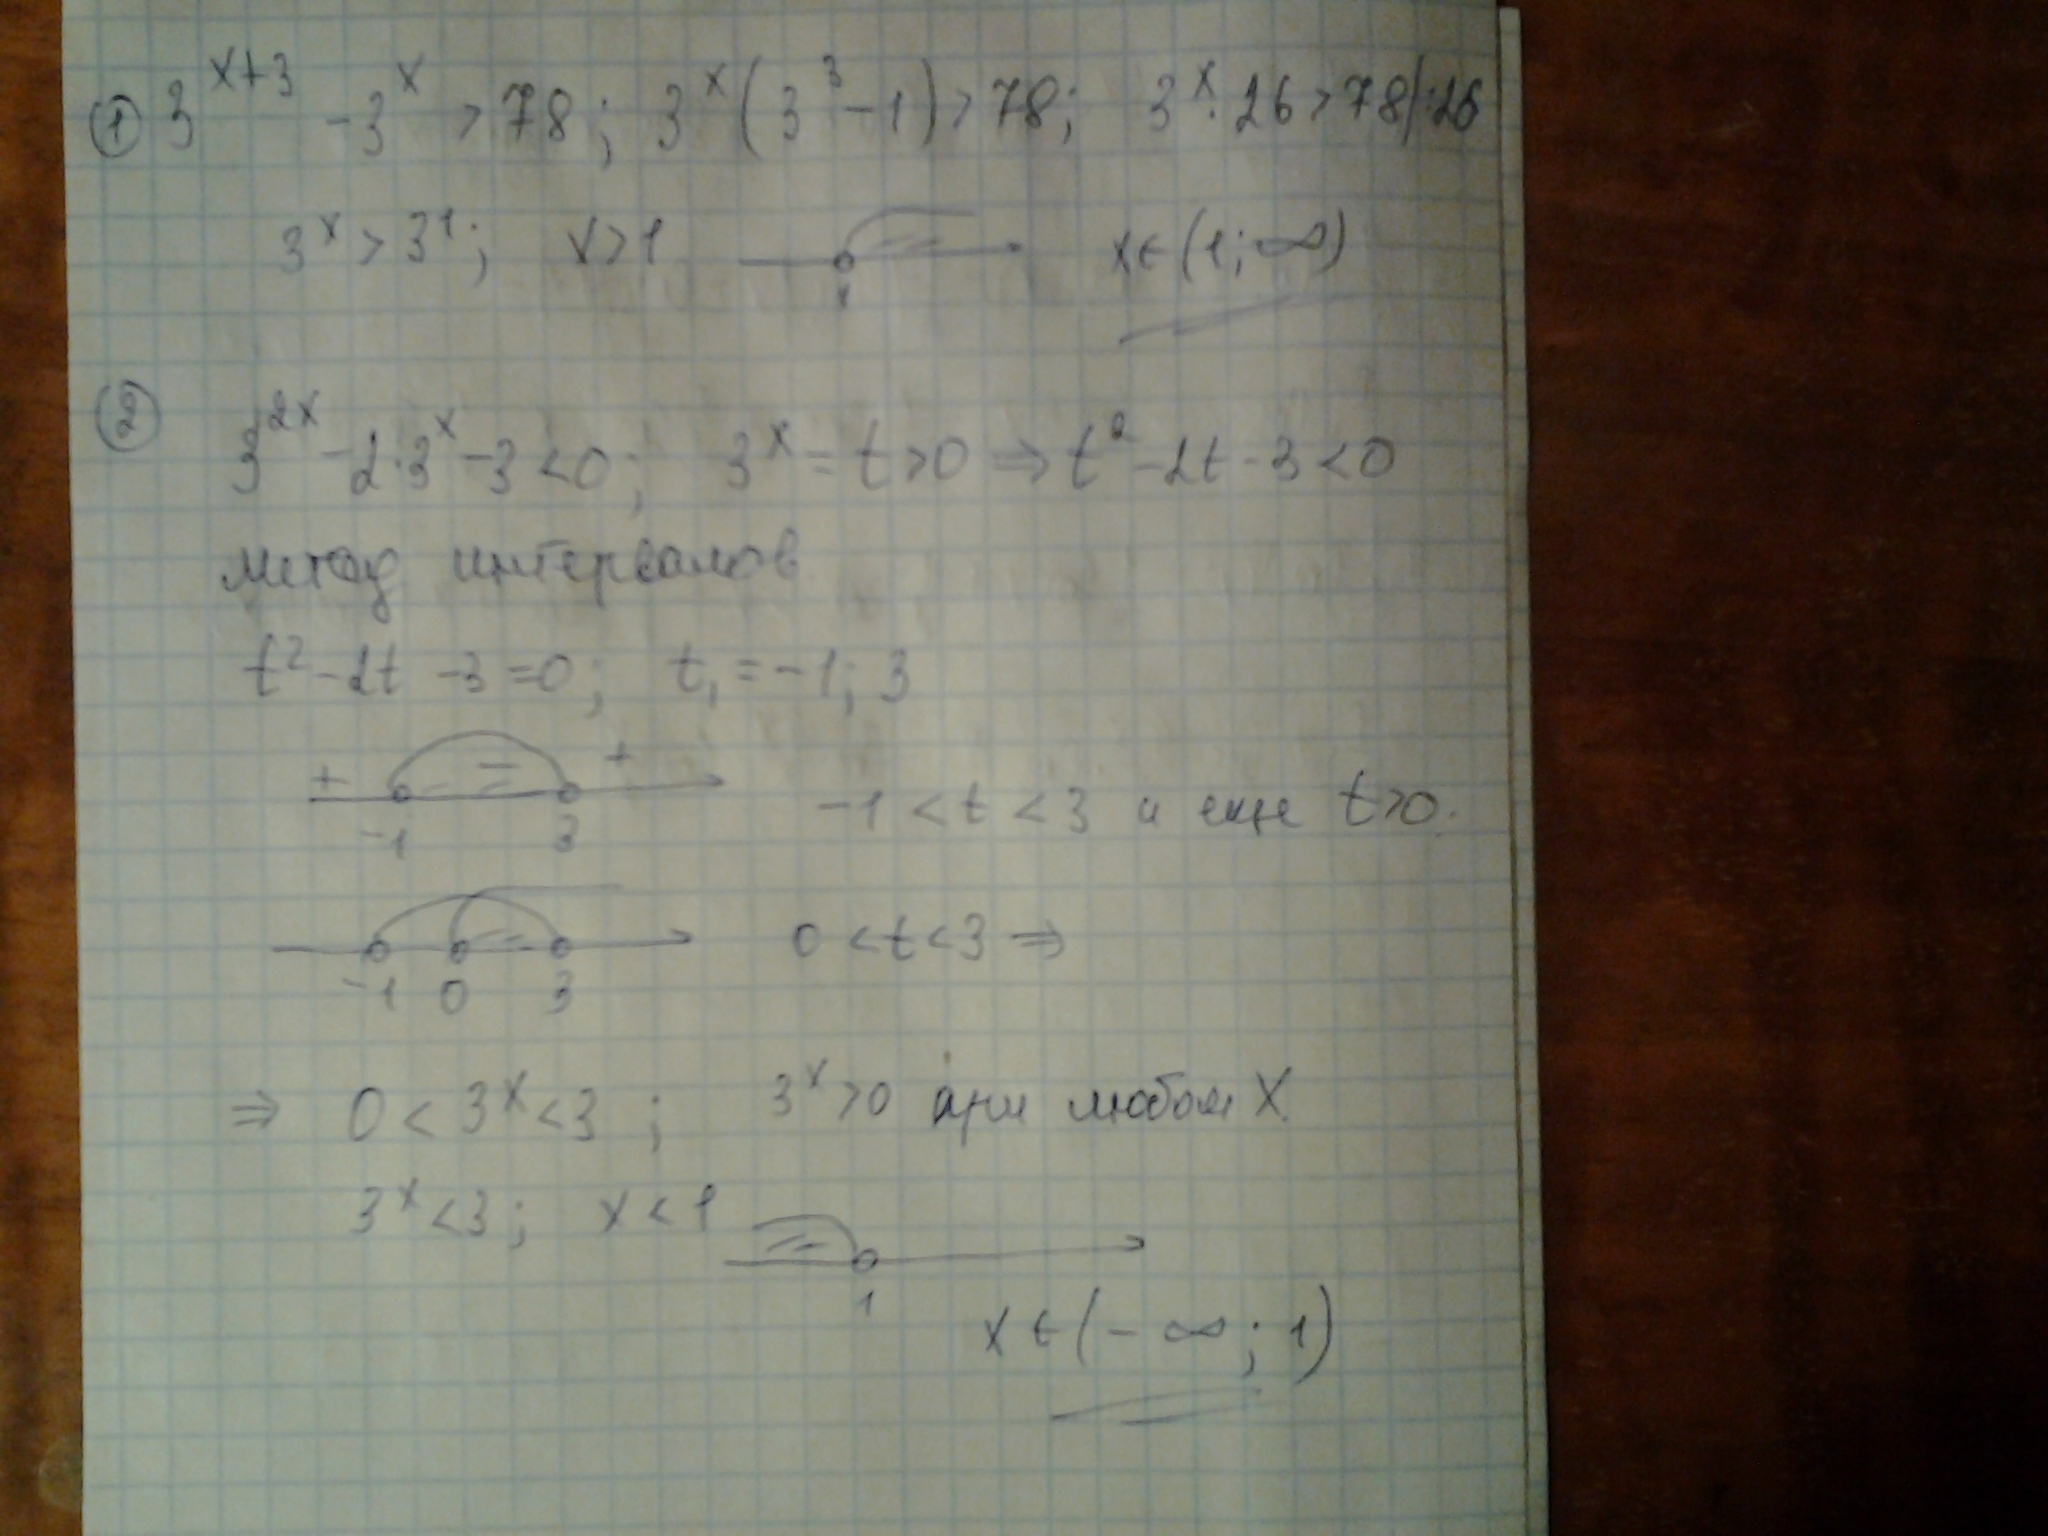 ① 3^(x+3) - 3^x > 78; 3^x(3^3 - 1) > 78; 3^x · 26 > 78 |:26
3^x > 3^1; x > 1 x ∈ (1; ∞)
1
②
3^(2x) - 2·3^x - 3 < 0; 3^x = t > 0 ⇒ t^2 - 2t - 3 < 0
метод интервалов
t^2 - 2t - 3 = 0; t₁ = -1; 3
+ - +
-1 3 -1 < t < 3 и еще t > 0.
0 < t < 3 ⇒
-1 0 3
⇒ 0 < 3^x < 3; 3^x > 0 при любом x.
3^x < 3; x < 1
1
x ∈ (-∞; 1)